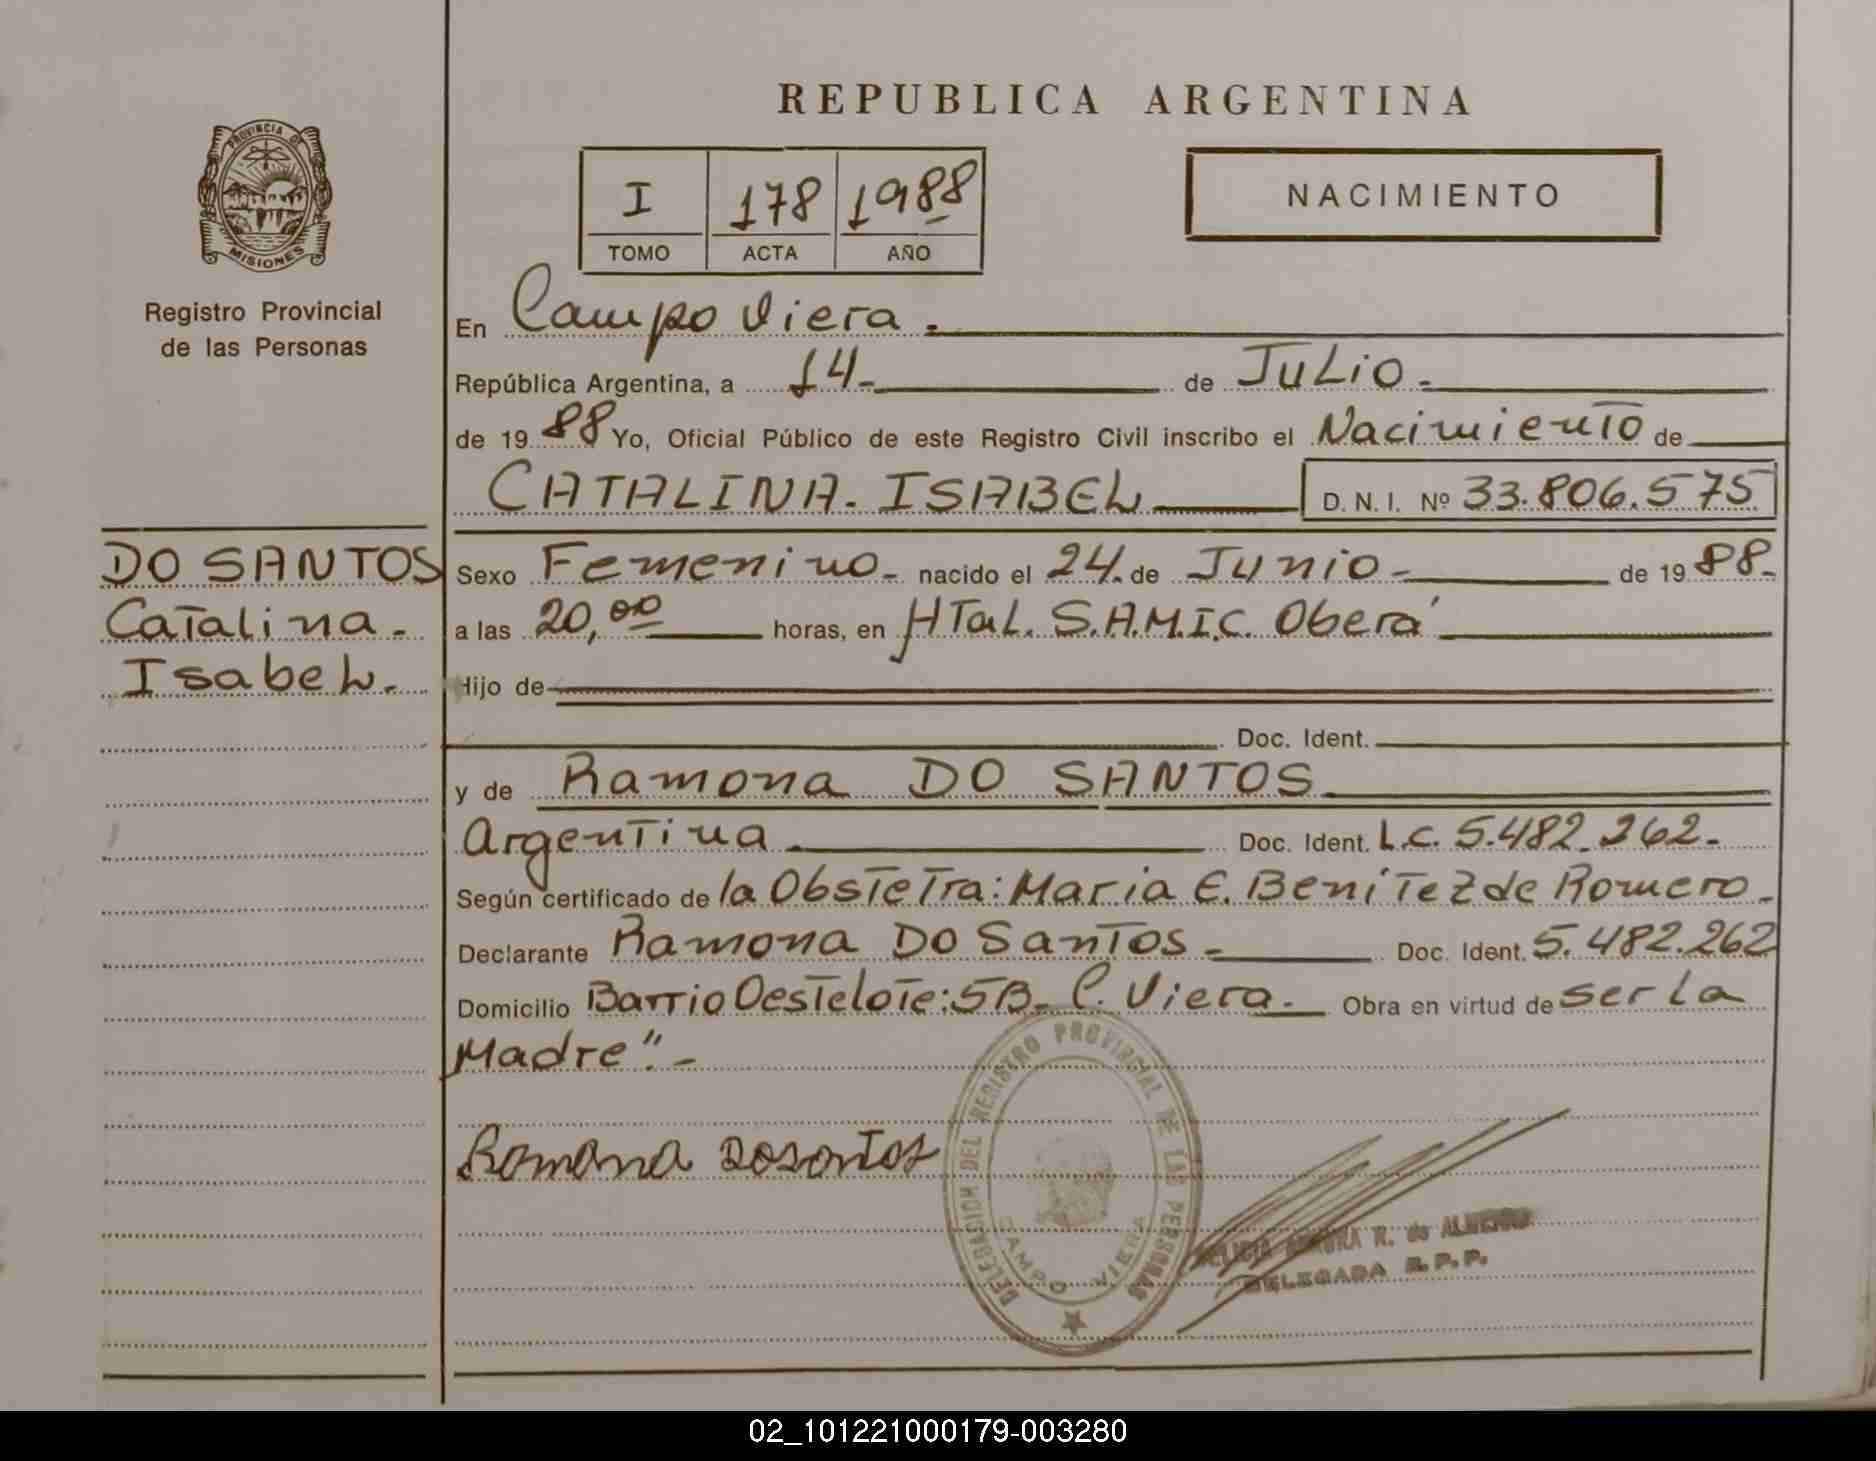 REPUBLICA ARGENTINA
PROVINCIA DE
MISIONES
Registro Provincial
de las Personas
I 178 1988
TOMO ACTA AÑO
NACIMIENTO
En Campo Viera.
República Argentina, a 14- de Julio.-
de 1988 Yo, Oficial Público de este Registro Civil inscribo el Nacimiento de
CATALINA. ISABEL D. N. I. Nº 33.806.575
DO SANTOS
Catalina.
Isabel.
Sexo Femenino- nacido el 24. de Junio- de 1988-
a las 20,00 horas, en HTal. S.A.M.I.C. Oberá
Hijo de
Doc. Ident.
y de Ramona DO SANTOS
Argentina. Doc. Ident. L.C. 5.482.262-
Según certificado de la Obstetra: Maria E. Benitez de Romero.
Declarante Ramona DO SANTOS- Doc. Ident. 5.482.262
Domicilio Barrio Oeste lote: 5B- C. Viera. Obra en virtud de ser la
Madre".-
Ramona Dosantos
DELEGACION DEL REGISTRO PROVINCIAL DE LAS PERSONAS
CAMPO VIERA
R. de
DELEGADA R.P.P.
02_101221000179-003280